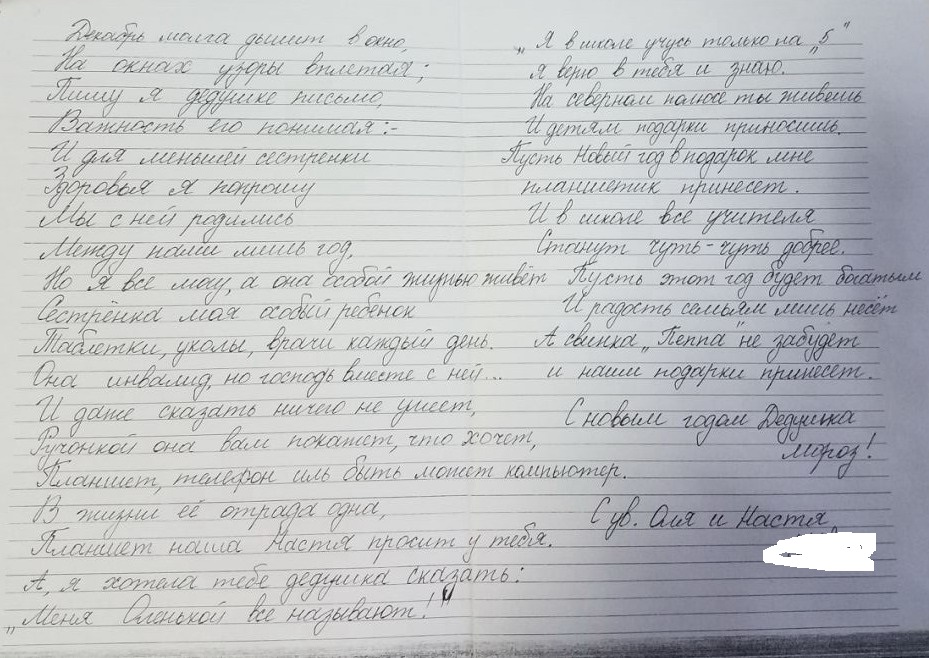 Декабрь молча дышит в окно,
На окнах узоры вплетая;
Пишу я дедушке письмо,
Важность его понимая:-
И для меньшей сестренки
Здоровья я попрошу
Мы с ней родились
Между нами лишь год.
Но я все могу, а она особой жизнью живёт
Сестрёнка моя особый ребенок
Таблетки, уколы, врачи каждый день.
Она инвалид, но господь вместе с ней...
И даже сказать ничего не умеет,
Ручонкой она вам покажет, что хочет,
Планшет, телефон иль быть может компьютер.
В жизни её отрада одна,
Планшет наша Настя просит у тебя.
А, я хотела тебе дедушка сказать:
„Меня Оленькой все называют!"
„Я в школе учусь только на „5"
Я верю в тебя и знаю.
На северном полюсе ты живешь
И детям подарки приносишь.
Пусть Новый год в подарок мне
планшетик принесет.
И в школе все учителя
Станут чуть-чуть добрее.
Пусть этот год будет богатым
И радость семьям лишь несёт
А свинка „Пеппа" не забудет
и наши подарки принесет.
С новым годом Дедушка
мороз!
С ув. Оля и Настя